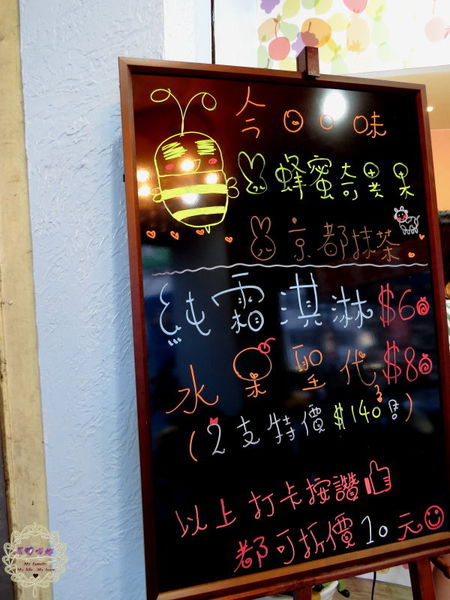 今日口味
蜂蜜奇異果
京都抹茶
純霜淇淋 $60
水果聖代 $80
(2支特價 $140)
以上打卡按讚
都可折價10元
My family
My life My love